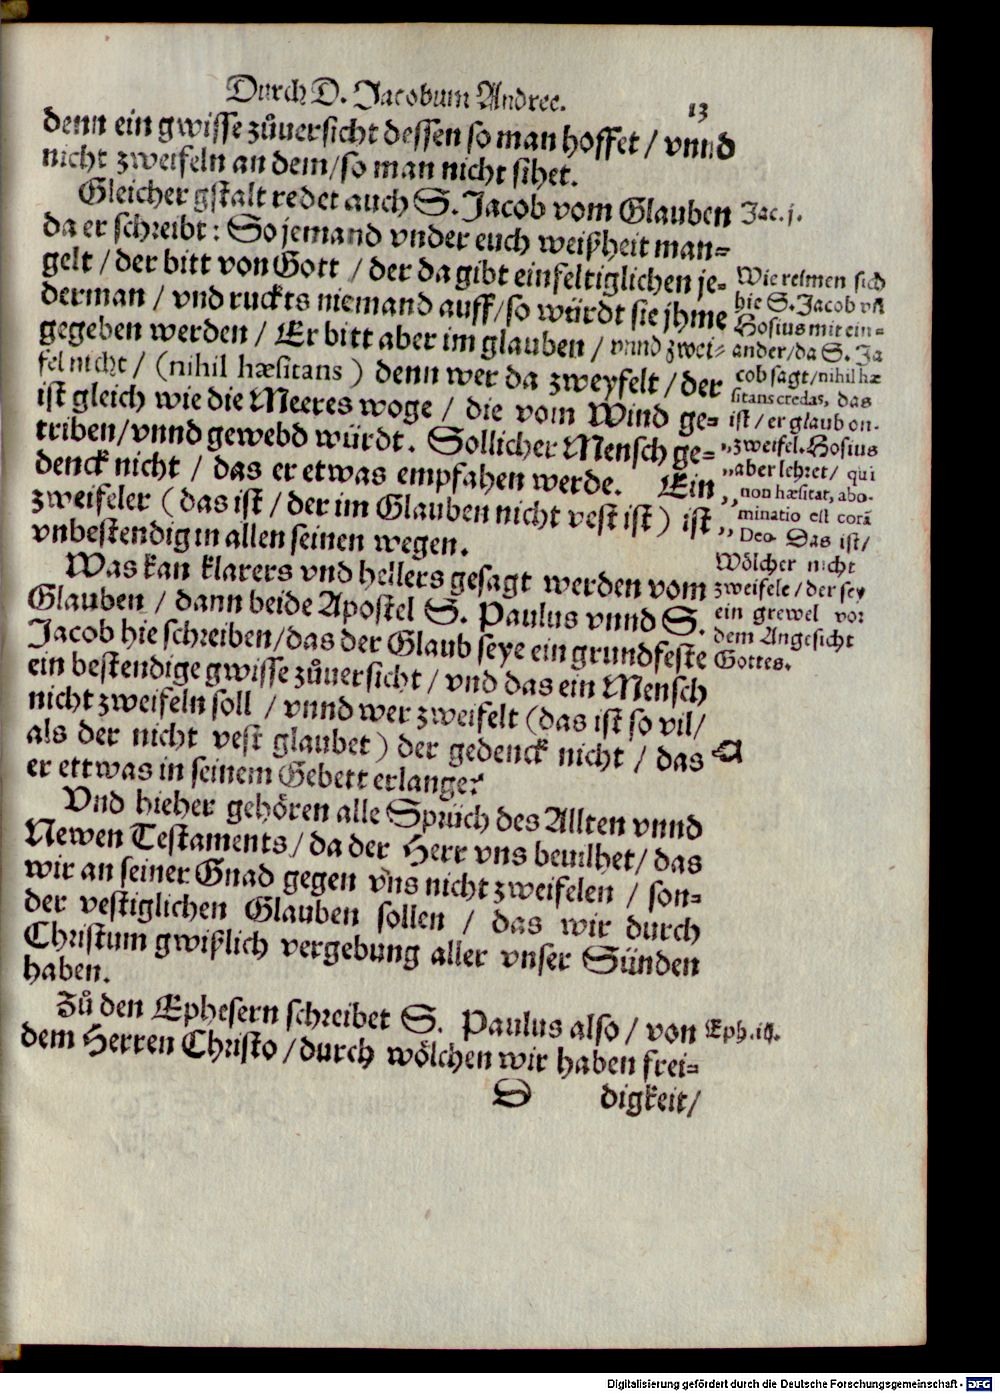 Durch D. Jacobum Andree. 13
denn ein gwisse zůuersicht dessen so man hoffet / vnnd
nicht zweifeln an dem/so man nicht sihet.
Gleicher gstalt redet auch S. Jacob vom Glauben
da er schreibt: So jemand vnder euch weißheit man=
gelt / der bitt von Gott / der da gibt einfeltiglichen je=
derman / vnd ruckts niemand auff/so würdt sie jhme
gegeben werden / Er bitt aber im glauben / vnnd zwei=
fel nicht / (nihil hæsitans) denn wer da zweyfelt / der
ist gleich wie die Meeres woge / die vom Wind ge=
triben/vnnd gewebd würdt. Sollicher Mensch ge=
denck nicht / das er etwas empfahen werde. Ein
zweifeler (das ist / der im Glauben nicht vest ist) ist
vnbestendig in allen seinen wegen.
Was kan klarers vnd hellers gesagt werden vom
Glauben / dann beide Apostel S. Paulus vnnd S.
Jacob hie schreiben/das der Glaub seye ein grundfeste
ein bestendige gwisse zůuersicht / vnd das ein Mensch
nicht zweifeln soll / vnnd wer zweifelt (das ist so vil/
als der nicht vest glaubet) der gedenck nicht / das
er ettwas in seinem Gebett erlange?
Vnd hieher gehören alle Sprüch des Allten vnnd
Newen Testaments / da der Herr vns beuilhet/ das
wir an seiner Gnad gegen vns nicht zweifelen / son=
der vestiglichen Glauben sollen / das wir durch
Christum gwißlich vergebung aller vnser Sünden
haben.
Zů den Ephesern schreibet S. Paulus also / von
dem Herren Christo / durch wölchen wir haben frei=
D digkeit/
Jac. j.
Wie reimen sich
hie S. Jacob vñ
Hosius mit ein=
ander/da S. Ja
cob sagt/nihil hæ
sitans credas, das
ist / er glaub on.
„zweifel. Hosius
„aber lehret / qui
„non hæsitat, abo-
„minatio est corã
„Deo. Das ist/
Wölcher nicht
zweifele / der sey
ein grewel vor
dem Angesicht
Gottes.
Eph. iij.
Digitalisierung gefördert durch die Deutsche Forschungsgemeinschaft - DFG